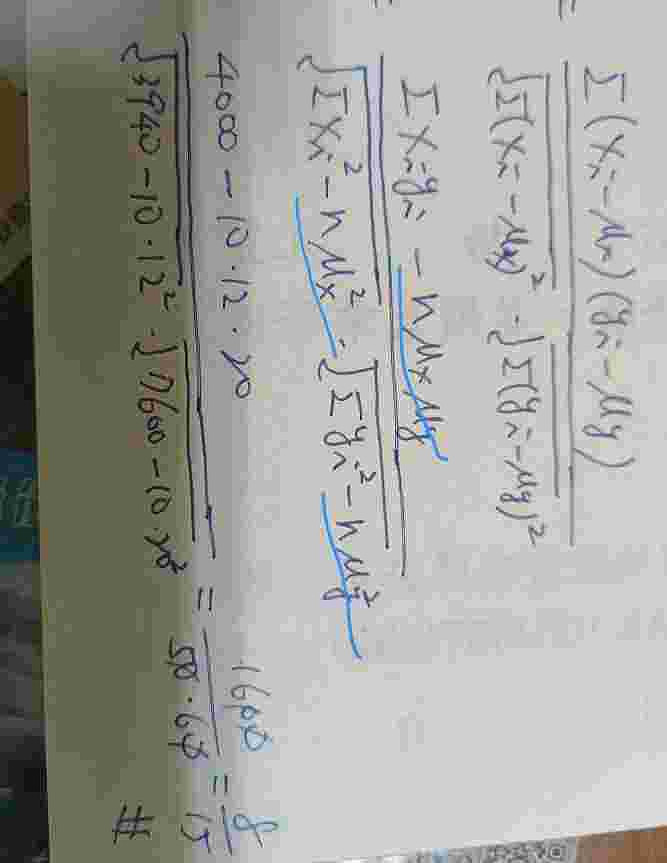 = Σ(xᵢ - μx)(yᵢ - μy) / √Σ(xᵢ - μx)² · √Σ(yᵢ - μy)²
= Σxᵢyᵢ - nμxμy / √Σxᵢ² - nμx² · √Σyᵢ² - nμy²
4000 - 10·12·20 / √3940 - 10·12² · √7600 - 10·20² = 1600 / 50·60 = 8/15 #